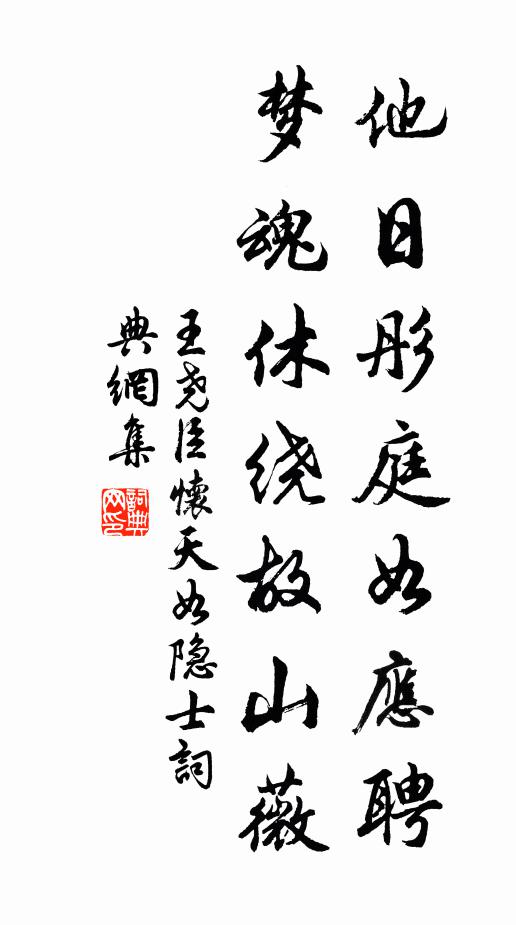 他日彤庭如應聘
梦魂休绕故山薇
王尧臣懷天如隐士詞
典網集
詞典
网印